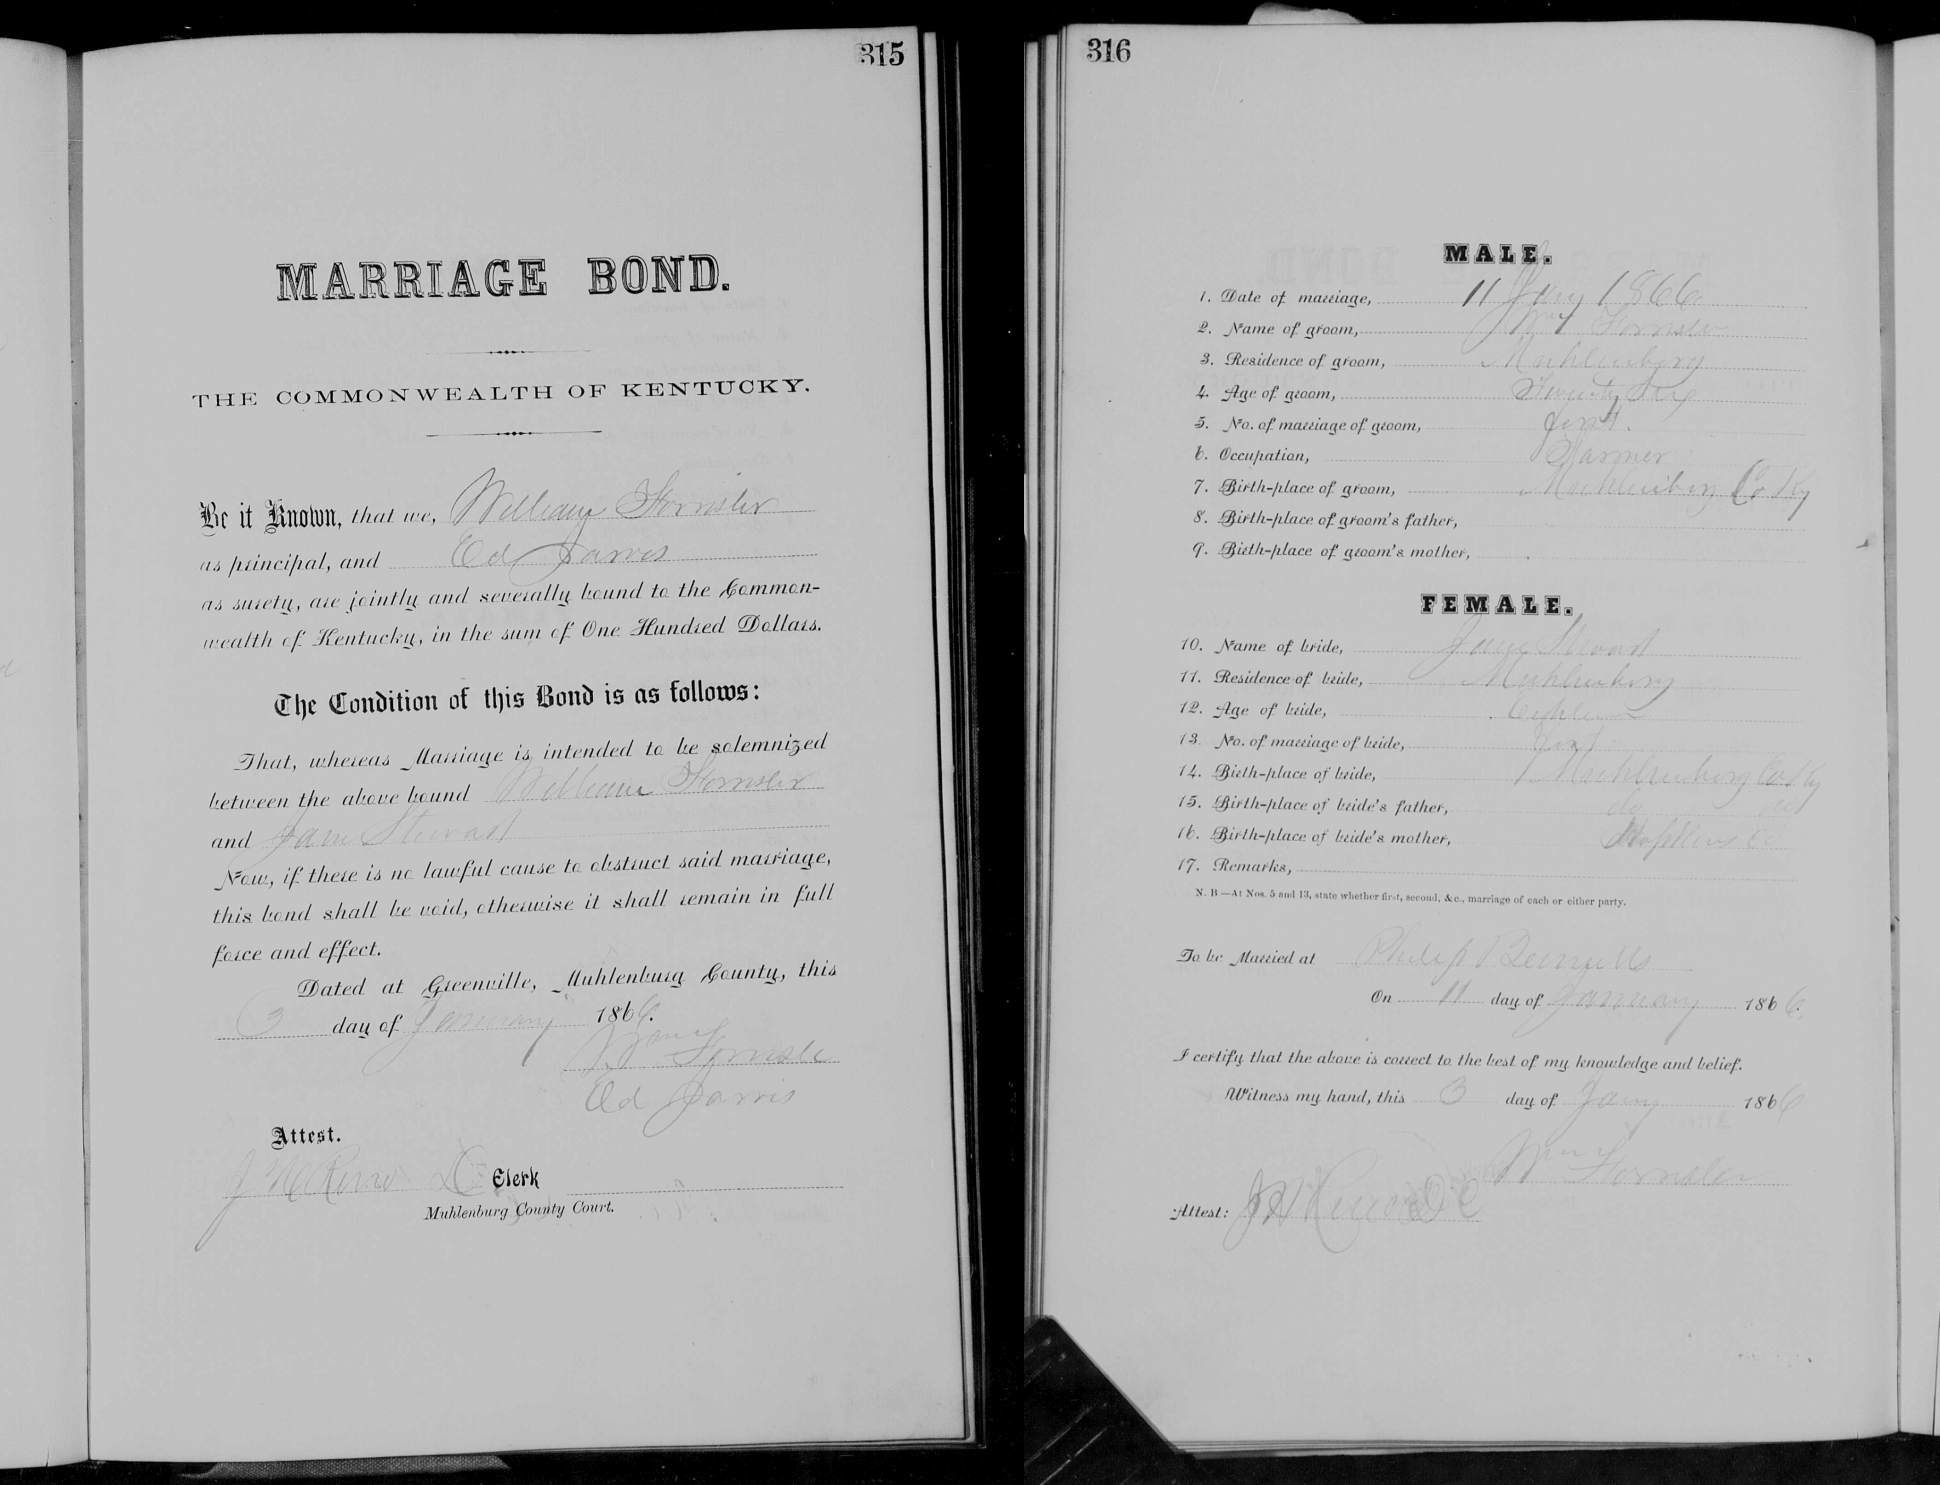 315
MARRIAGE BOND.
THE COMMONWEALTH OF KENTUCKY.
Be it Known, that we, William Fornsler
as principal, and Ed Jarvis
as surety, are jointly and severally bound to the Common-
wealth of Kentucky, in the sum of One Hundred Dollars.
The Condition of this Bond is as follows:
That, whereas Marriage is intended to be solemnized
between the above bound William Fornsler
and Jane Steward
Now, if there is no lawful cause to obstruct said marriage,
this bond shall be void, otherwise it shall remain in full
force and effect.
Dated at Greenville, Muhlenburg County, this
3 day of January 1866.
Wm Fornsler
Ed Jarvis
Attest.
D Clerk
Muhlenburg County Court.
316
MALE.
1. Date of marriage, 11 Jany 1866
2. Name of groom, Wm Fornsler
3. Residence of groom, Muhlenberg
4. Age of groom, Twenty Six
5. No. of marriage of groom, first.
6. Occupation, Farmer
7. Birth-place of groom, Muhlenberg Co Ky
8. Birth-place of groom's father,
9. Birth-place of groom's mother,
FEMALE.
10. Name of bride, Jane Steward
11. Residence of bride, Muhlenberg
12. Age of bride,
13. No. of marriage of bride, first
14. Birth-place of bride, Muhlenberg Co Ky
15. Birth-place of bride's father, do do
16. Birth-place of bride's mother, Hopkins Co
17. Remarks,
N. B—At Nos. 5 and 13, state whether first, second, &c., marriage of each or either party.
To be Married at Philip
On 11 day of January 1866.
I certify that the above is correct to the best of my knowledge and belief.
Witness my hand, this 3 day of Jany 1866
Wm Fornsler
Attest: D C